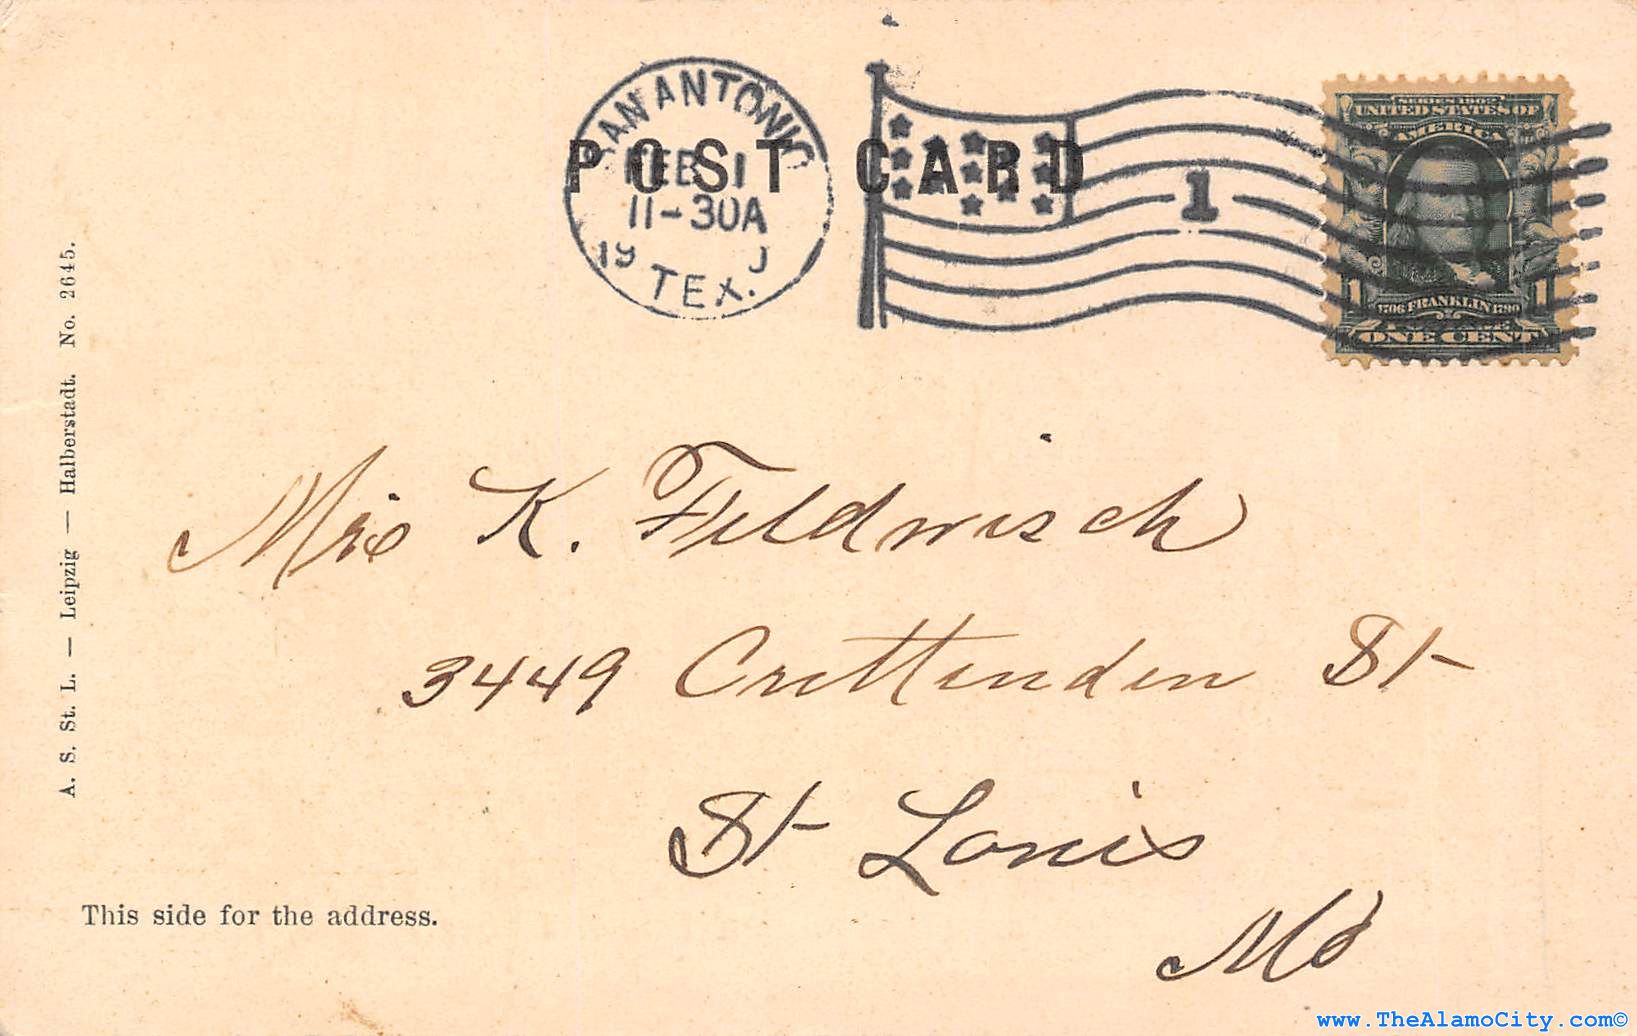 SAN ANTONIO
FEB 1
11-30A
19
TEX.
POST CARD
1
SERIES 1902
UNITED STATES OF
AMERICA
1 1706 FRANKLIN 1790 1
POSTAGE
ONE CENT
A. S. St. L. — Leipzig — Halberstadt. No. 2645.
K. Feldwisch
3449 Crittenden St
St Louis
Mo
This side for the address.
www.TheAlamoCity.com©